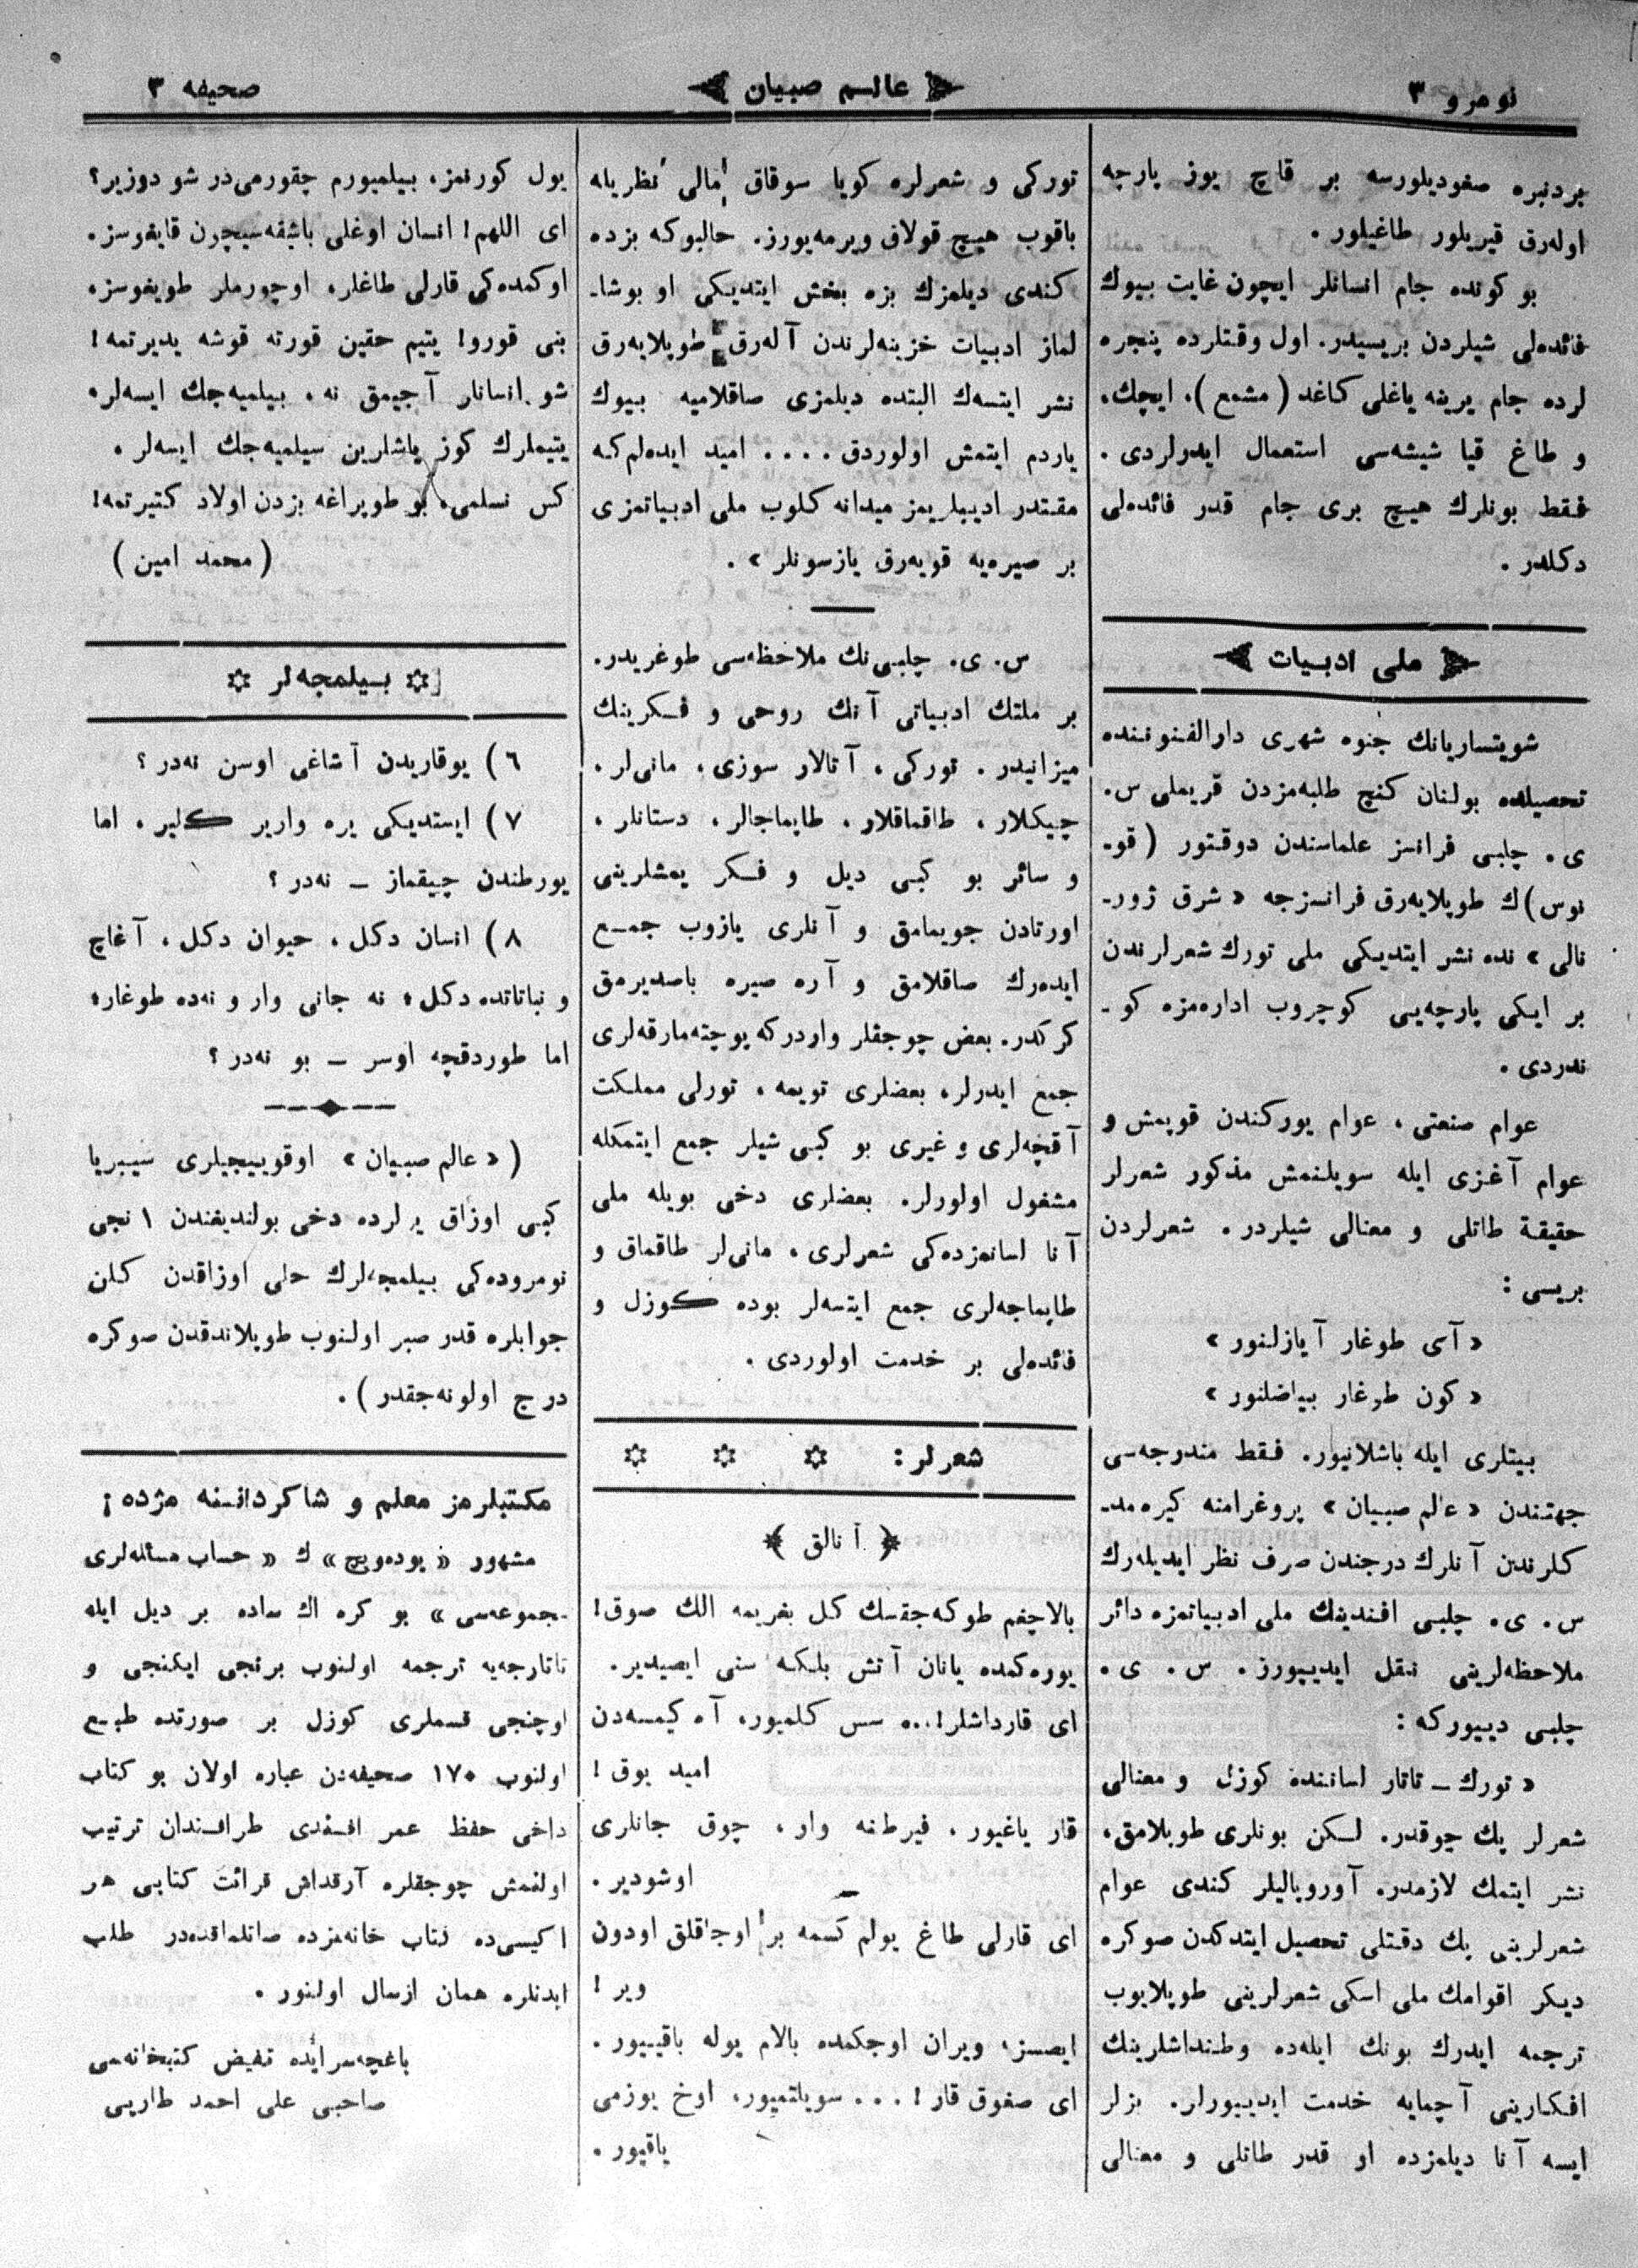 نومرو ٣
عالم صبيان
صحيفه ٣
بردنبره صغوديلورسه بر قاچ يوز پارچه
اولەرق قيريلور طاغيلور .
بو كونده جام انسانلر ايچون غايت بيوك
فائدەلى شيلردن بريسيدر. اول وقتلرده پنجره
لرده جام يرينه ياغلى كاغد ( مشمع )، ايچك،
و طاغ قيا شيشەسى استعمال ايدرلردى .
فقط بونلرك هيچ برى جام قدر فائدەلى
دكلدر .
ملى ادبيات
شويتساريانك جنوه شهرى دارالفنوننده
تحصيلده بولنان كنج طلبەمزدن قريملى س.
ى . چلبى فرانسز علماسندن دوقتور ( قو-
نوس)ك طوپلايەرق فرانسزجه « شرق ژور-
نالى » نده نشر ايتديكى ملى تورك شعرلرندن
بر ايكى پارچەيى كوچروب ادارەمزه كو -
ندردى .
عوام صنعتى ، عوام يوركندن قوپمش و
عوام آغزى ايله سويلنمش مذكور شعرلر
حقيقة طاتلى و معنالى شيلردر . شعرلردن
بريسى :
« آى طوغار آيازلنور »
« كون طوغار بياضلنور »
بيتلرى ايله باشلانيور. فقط مندرجەسى
جهتندن « عالم صبيان » پروغرامنه كيرەمد-
كلرندن آنلرك درجندن صرف نظر ايديلەرك
س. ى. چلبى افندينك ملى ادبياتمزه دائر
ملاحظەلرينى نقل ايديپورز. س . ى .
چلبى دييوركه :
« تورك ــ تاتار لساننده كوزل و معنالى
شعرلر پك چوقدر. لكن بونلرى طوپلامق،
نشر ايتمك لازمدر. آوروپاليلر كندى عوام
شعرلرينى پك دقتلى تحصيل ايتدكدن صوكره
ديكر اقوامك ملى اسكى شعرلرينى طوپلايوب
ترجمه ايدرك بونك ايلەده وطنداشلرينك
افكارينى آچمايه خدمت ايدييورلر. بزلر
ايسه آنا ديلمزده او قدر طاتلى و معنالى
توركى و شعرلره كويا سوقاق مالى نظريله
باقوب هيچ قولاق ويرمەيورز. حالبوكه بزده
كندى ديلمزك بزه بخش ايتديكى او بوشا-
لماز ادبيات خزينەلرندن آلەرق طوپلايەرق
نشر ايتسەك البتده ديلمزى صاقلاميه بيوك
ياردم ايتمش اولوردق . . . . اميد ايدەلم كه
مقتدر اديبلريمز ميدانه كلوب ملى ادبياتمزى
بر صيرەيه قويەرق يازسونلر » .
س. ى. چلبى نك ملاحظەسى طوغريدر.
بر ملتك ادبياتى آنك روحى و فكرينك
ميزانيدر . توركى ، آتالار سوزى ، مانى لر ،
چيكلار ، طاقماقلار ، طاپماجالر ، دستانلر ،
و سائر بو كبى ديل و فكر يمشلرينى
اورتادن جويمامق و آنلرى يازوب جمع
ايدەرك صاقلامق و آره صيره باصديرمق
كركدر. بعض چوجقلر واردركه پوچتەمارقەلرى
جمع ايدرلر، بعضلرى تويمه ، تورلى مملكت
آقچەلرى و غيرى بو كبى شيلر جمع ايتمكله
مشغول اولورلر. بعضلرى دخى بويله ملى
آنا لسانمزدەكى شعرلرى ، مانى لر طاقماق و
طاپماجەلرى جمع ايتسەلر بوده كوزل و
فائدەلى بر خدمت اولوردى .
شعرلر :
آنالق
بالاجغم طوكەجقسك كل بغريمه الك صوق!
يورەكمده يانان آتش بلكه سنى ايصيدير.
اى قارداشلر!... سس كلميور، آه كيمسەدن
اميد يوق !
قار ياغيور ، فيرطنه وار ، چوق جانلرى
اوشودير .
اى قارلى طاغ يولم كسمه بر اوجاقلق اودون
وير !
ايصسز، ويران اوجكمده بالام يوله باقييور .
اى صغوق قار ! . . . سويلتميور، اوخ يوزمى
ياقيور .
يول كورنمز، بيلميورم چقورمى در شو دوزير؟
اى اللهم! انسان اوغلى باشقەسيچون قايغوسز.
اوكمدەكى قارلى طاغلر، اوچورملر طويغوسز،
بنى قورو! يتيم حقين قورته قوشه يديرتمه!
شو انسانلر آجيمق نه ، بيلميەجك ايسەلر،
يتيملرك كوز ياشلرين سيلميەجك ايسەلر ،
كس نسلمى، بو طوپراغه بزدن اولاد كتيرتمه!
( محمد امين )
بيلمجەلر
٦ ) يوقاريدن آشاغى اوسن نەدر ؟
٧ ) ايستديكى يره وارير كلير ، اما
يورطندن چيقماز ــ نەدر ؟
٨ ) انسان دكل ، حيوان دكل ، آغاچ
و نباتاتده دكل ؛ نه جانى وار و نەده طوغار؛
اما طوردقچه اوسر ــ بو نەدر ؟
( « عالم صبيان » اوقوييجيلرى سيبريا
كبى اوزاق يرلرده دخى بولنديغندن ١ نجى
نومرودەكى بيلمجەلرك حلى اوزاقدن كلن
جوابلره قدر صبر اولنوب طوپلاندقدن صوكره
درج اولونەجقدر ) .
مكتبلرمز معلم و شاكردانينه مژده !
مشهور « يودەويچ » ك « حساب مسائلەلرى
مجموعەسى » بو كره اك ساده بر ديل ايله
تاتارجەيه ترجمه اولنوب برنجى ايكنجى و
اوچنجى قسملرى كوزل بر صورتده طبع
اولنوب ١٧٠ صحيفەدن عباره اولان بو كتاب
داخى حفظ عمر افندى طرافندان ترتيب
اولنمش چوجقلره آرقداش قرائت كتابى هر
اكيسى ده كتاب خانەمزده صاتلماقدەدر طلب
ايدنلره همان ارسال اولنور .
باغچەسرايده تفيض كتبخانەسى
صاحبى على احمد طاربى